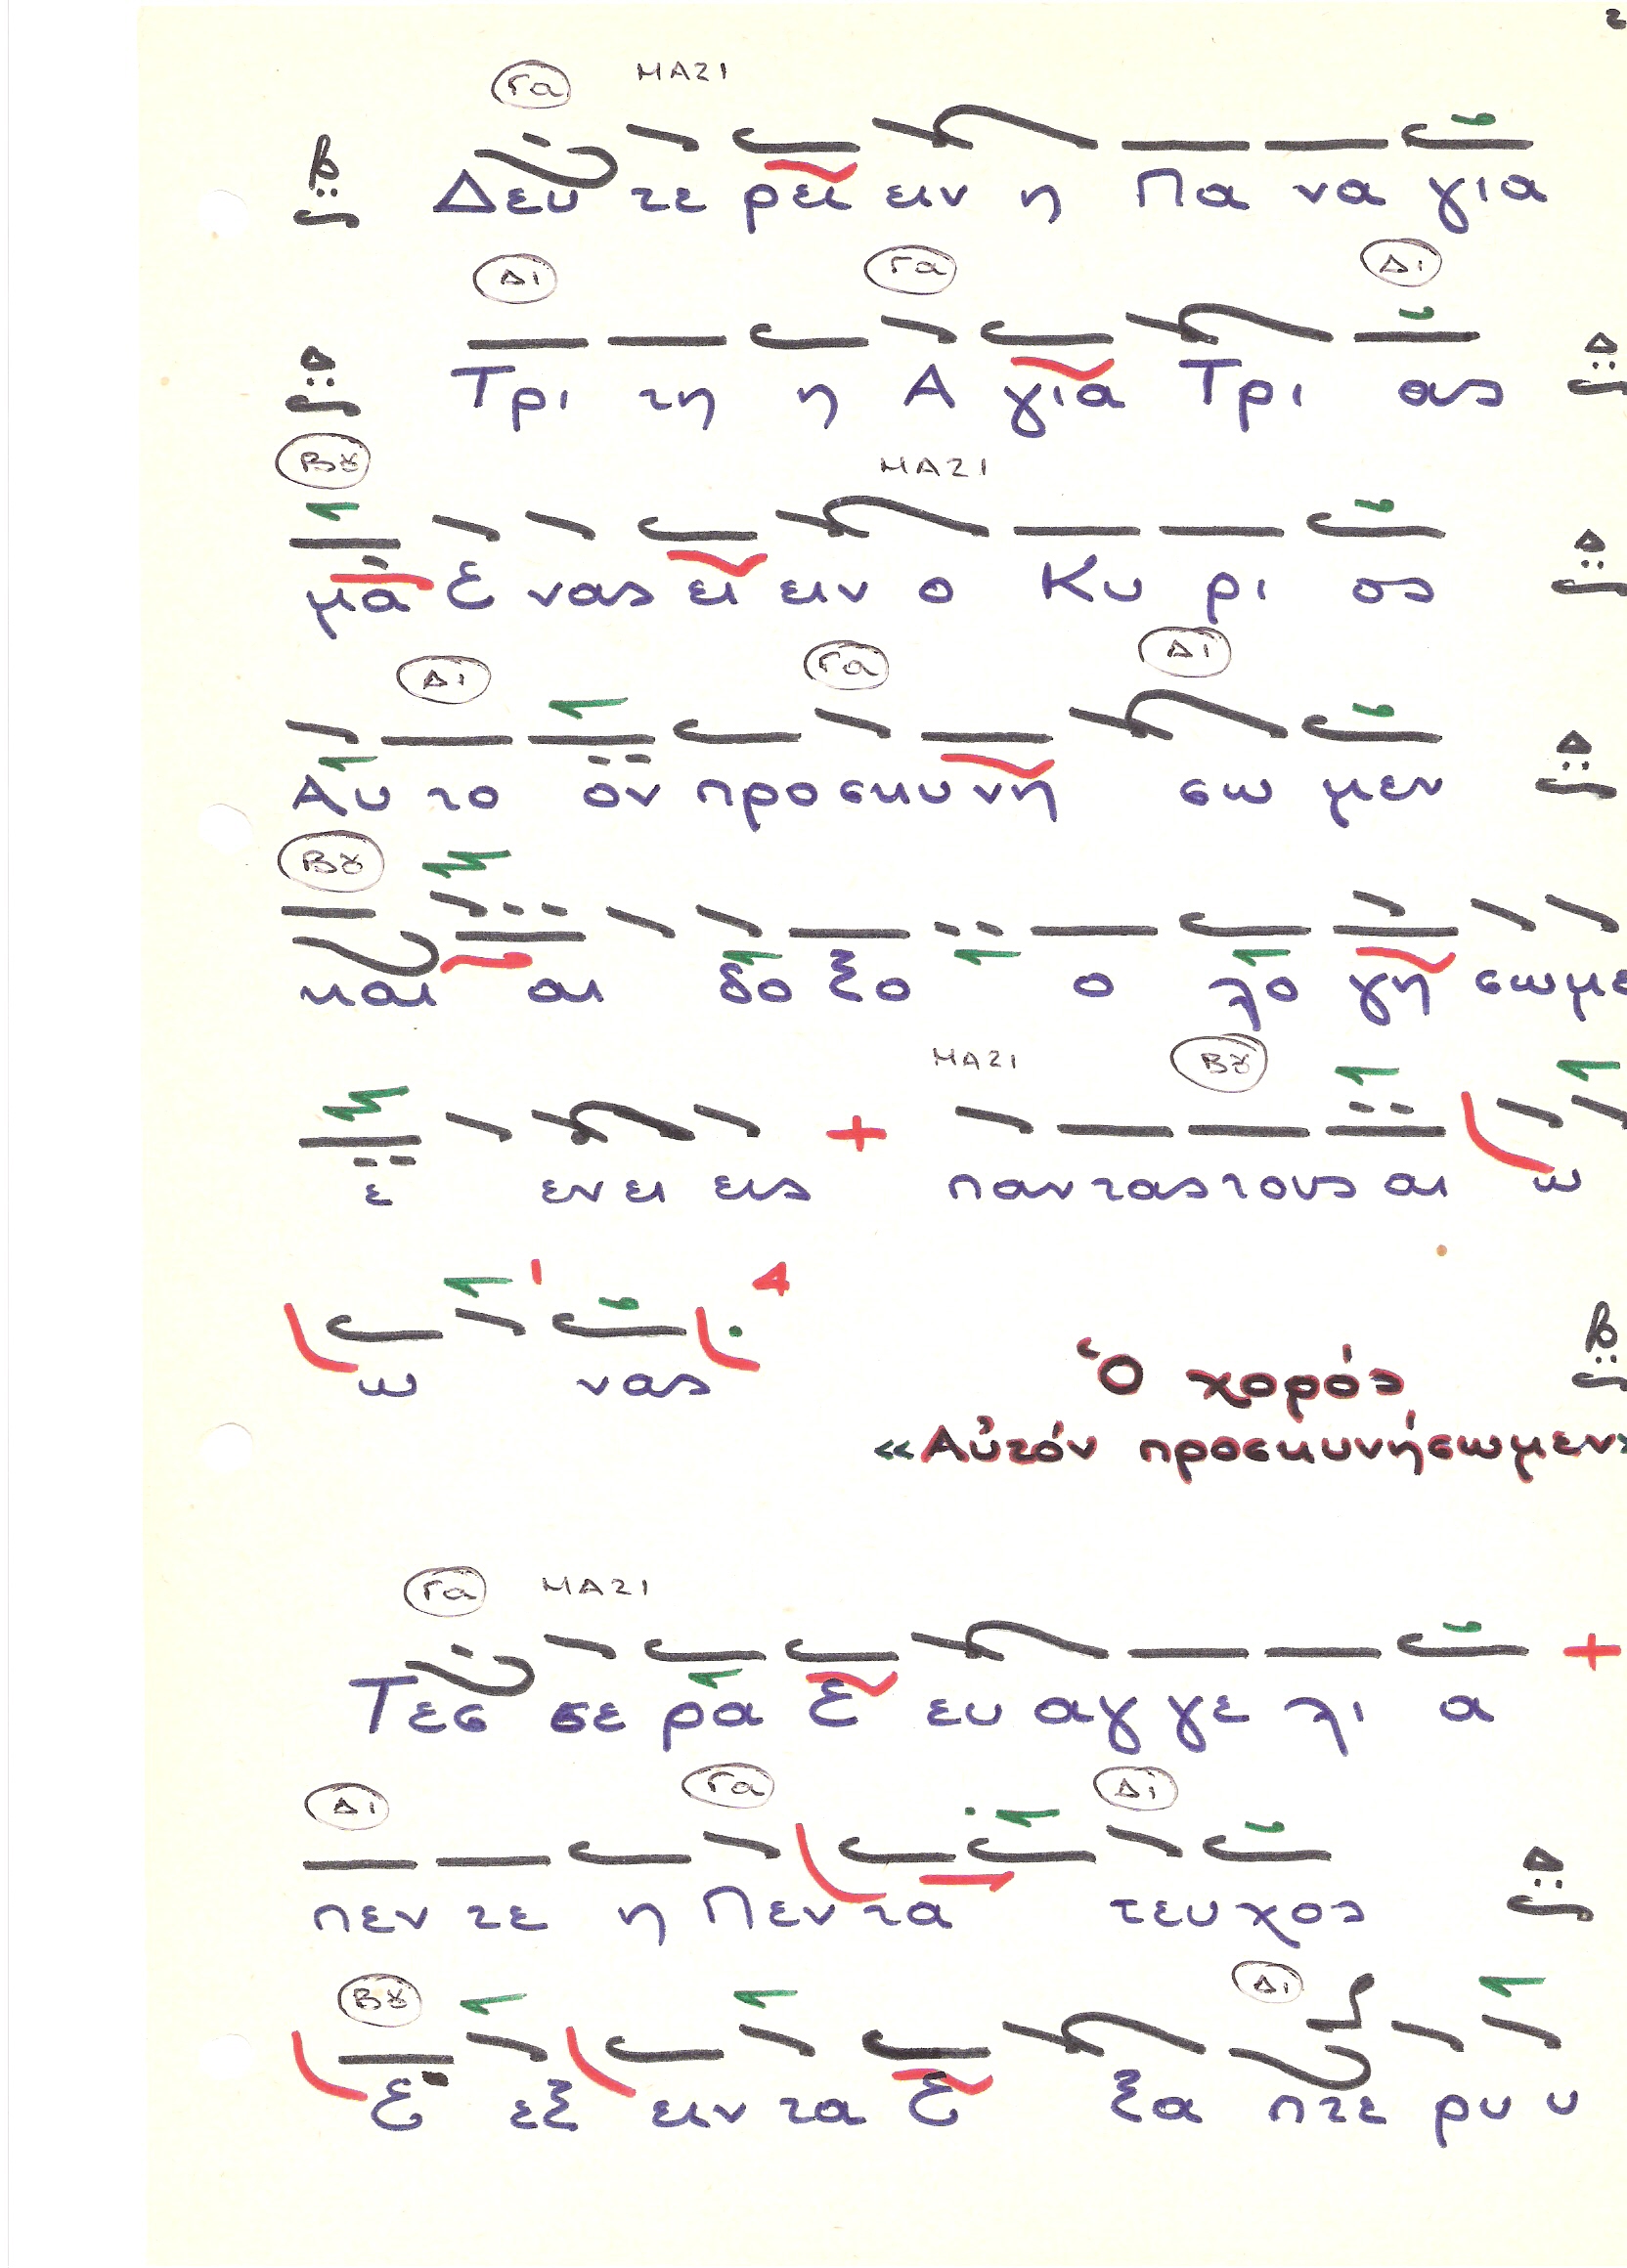 2
Γα ΜΑΖΙ
Δευ τε ρει ειν η Πα να για
Δι Γα Δι
Τρι τη η Α για Τρι ας
Βȣ ΜΑΖΙ
μα Ε νας ει ειν ο Κυ ρι ος
Δι Γα Δι
Αυ το ον προσκυ νη σω μεν
Βȣ
και αι δο ξο ο λο γη σωμε
ΜΑΖΙ Βȣ
ε εν ει εις + παν τας τους αι ω
1 4
ω νας
Ὁ χορός
«Αὐτόν προσκυνήσωμεν»
Γα ΜΑΖΙ
Τεσ σε ρα Ε ευ αγ γε λι α +
Δι Γα Δι
πεν τε η Πεν τα τευ χος
Βȣ Δι
Ε εξ ειν τα Ε ξα πτε ρυ υ